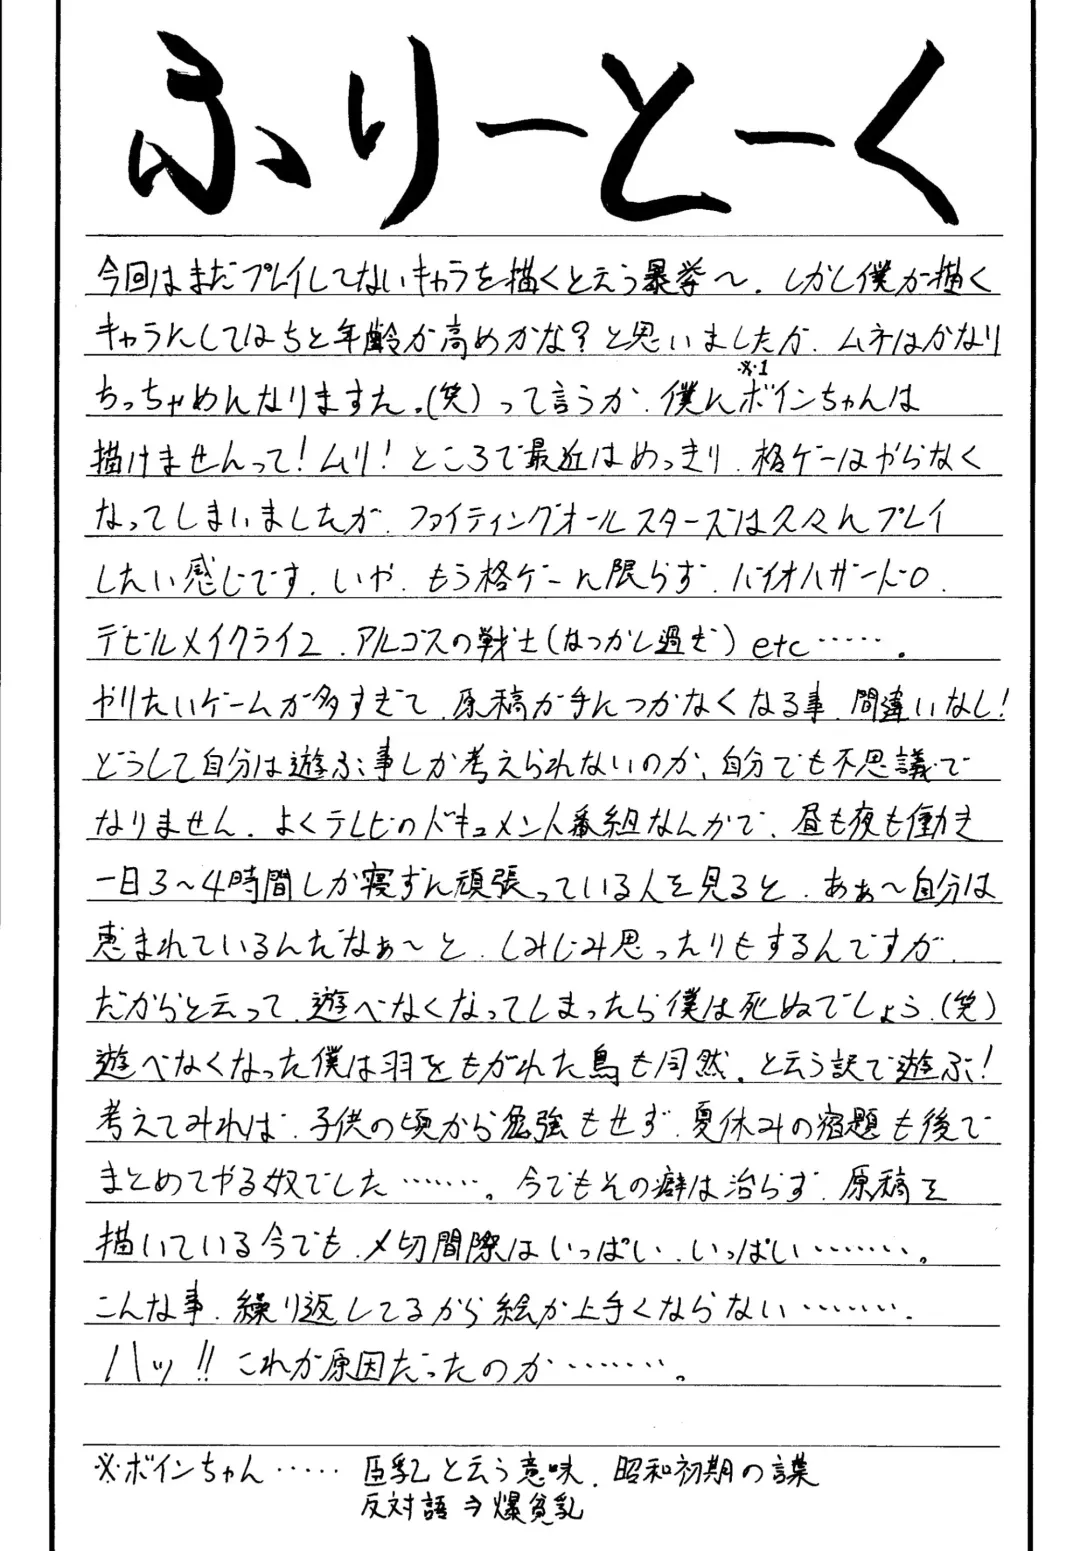 ふりーとーく
今回はまだプレイしてないキャラを描くと云う暴挙へ.しかし僕が描く
キャラにしてはちと年齢が高めかな?と思いましたが、ムネはかなり
ちっちゃめんなりますた。(笑)って言うか、僕にボインちゃんは
※1
描けませんって!ムリ!ところで最近はめっきり、格ゲーはやらなく
なってしまいましたが、ファイティングオールスターズは久々にプレイ
したい感じです。いや、もう格ゲーに限らず、バイオハザード0、
デビルメイクライ2、アルゴスの戦士(なつかし過ぎ)etc……。
やりたいゲームが多すぎて、原稿が手につかなくなる事、間違いなし!
どうして自分は遊ぶ事しか考えられないのか、自分でも不思議で
なりません。よくテレビのドキュメント番組なんかで、昼も夜も働き
一日3~4時間しか寝ずに頑張っている人を見ると、あぁ~自分は
恵まれているんだなぁ~と、しみじみ思ったりもするんですが、
だからと云って、遊べなくなってしまったら僕は死ぬでしょう。(笑)
遊べなくなった僕は羽をもがれた鳥も同然。と云う訳で遊ぶ!
考えてみれば、子供の頃から勉強もせず、夏休みの宿題も後で
まとめてやる奴でした……。今でもその癖は治らず、原稿を
描いている今でも、〆切間際はいっぱい、いっぱい……。
こんな事、繰り返してるから絵が上手くならない……。
ハッ!!これが原因だったのか……。
※ボインちゃん……巨乳と云う意味。昭和初期の言葉
反対語⇒爆貧乳